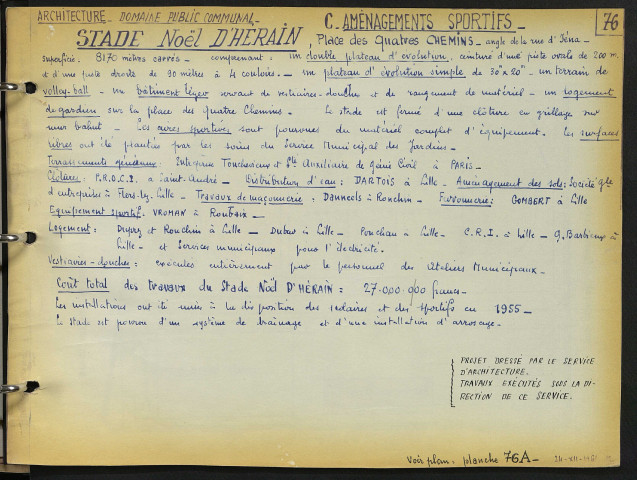 ARCHITECTURE - DOMAINE PUBLIC COMMUNAL - C. AMÉNAGEMENTS SPORTIFS - 76
STADE Noël D'HÉRAIN, Place des Quatres CHEMINS - angle de la rue d'Iéna -
Superficie : 8170 mètres carrés - comprenant : un double plateau d'évolution, ceinturé d'une piste ovale de 200 m.
et d'une piste droite de 90 mètres à 4 couloirs - un plateau d'évolution simple de 30 x 20 - un terrain de
volley-ball - un bâtiment léger servant de vestiaires-douches et de rangement de matériel - un logement
de gardien sur la place des Quatre Chemins - Le stade est fermé d'une clôture en grillage sur
mur bahut - Les aires sportives sont pourvues du matériel complet d'équipement. Les surfaces
libres ont été plantées par les soins du Service Municipal des Jardins -
Terrassements généraux : Tonchoviens et Sté Auxiliaire de Génie Civil à PARIS -
Clôtures : P.R.O.C.I. à Saint-André - Distribution d'eau : DARTOIS à Lille - Aménagement des sols : Société Gle
d'entreprises à Flers-lez-Lille - Travaux de maçonnerie : Danneels à Ronchin - Ferronnerie : GOMBERT à Lille
Equipement sportif : VROMAN à Roubaix -
Logement : Dupry et Ronchin à Lille - Dubus à Lille - Ponchau à Lille - C.R.I. à Lille - G. Barbieux à
Lille - et Services municipaux pour l'électricité -
Vestiaires - douches : exécutés entièrement par le personnel des Ateliers Municipaux -
Coût total des travaux du Stade Noël D'HÉRAIN : 27.000.000 francs -
Les installations ont été mises à la disposition des scolaires et des sportifs en 1955 -
Le stade est pourvu d'un système de drainage et d'une installation d'arrosage -
PROJET DRESSÉ PAR LE SERVICE
D'ARCHITECTURE.
TRAVAUX EXÉCUTÉS SOUS LA DI-
RECTION DE CE SERVICE.
Voir plan : planche 76A -